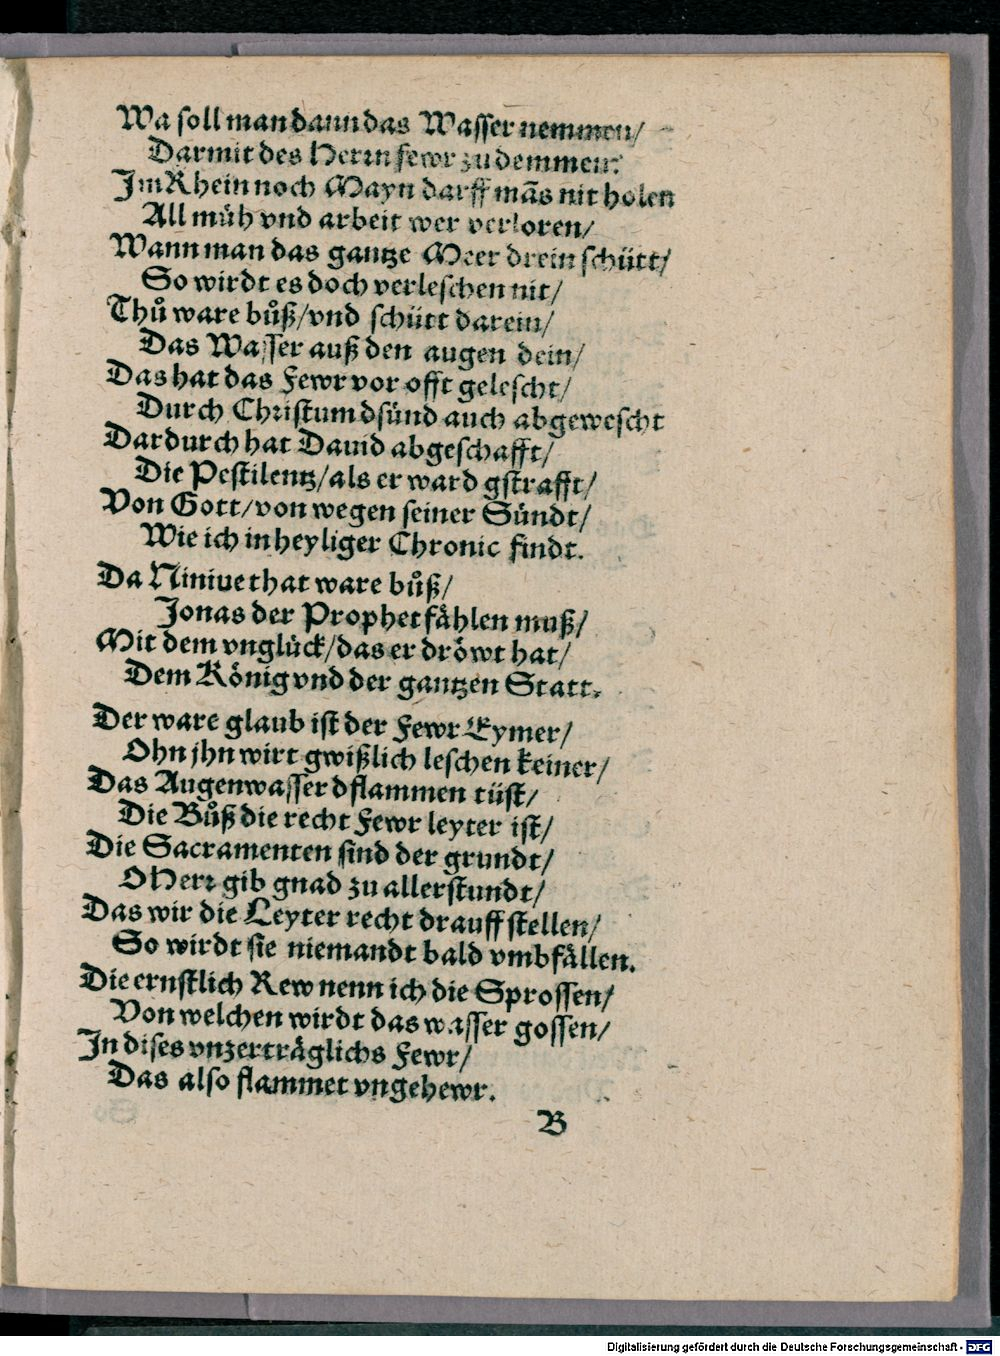 Wa soll man dann das Wasser nemmen/
Darmit des Herrn fewr zu demmen?
Im Rhein noch Mayn darff mãs nit holen
All müh vnd arbeit wer verloren/
Wann man das gantze Meer drein schütt/
So wirdt es doch verleschen nit/
Thů ware bůß/vnd schütt darein/
Das Wasser auß den augen dein/
Das hat das Fewr vor offt gelescht/
Durch Christum dsünd auch abgewescht
Dardurch hat Dauid abgeschafft/
Die Pestilentz/als er ward gstrafft/
Von Gott/von wegen seiner Sündt/
Wie ich in heyliger Chronic findt.
Da Niniue that ware bůß/
Jonas der Prophet fählen muß/
Mit dem vnglück/das er dröwt hat/
Dem König vnd der gantzen Statt.
Der ware glaub ist der Fewr Eymer/
Ohn jhn wirt gwißlich leschen keiner/
Das Augenwasser dflammen tüst/
Die Bůß die recht Fewr leyter ist/
Die Sacramenten sind der grundt/
O Herr gib gnad zu aller stundt/
Das wir die Leyter recht drauff stellen/
So wirdt sie niemandt bald vmbfällen.
Die ernstlich Rew nenn ich die Sprossen/
Von welchen wirdt das wasser gossen/
In dises vnzerträglichs Fewr/
Das also flammet vngehewr.
B
Digitalisierung gefördert durch die Deutsche Forschungsgemeinschaft - DFG